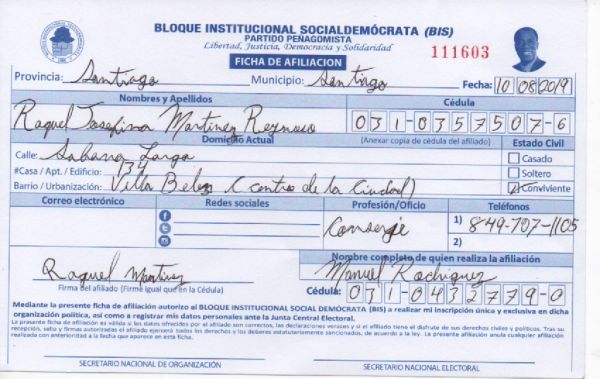 BLOQUE INSTITUCIONAL SOCIALDEMÓCRATA (BIS)
PARTIDO PEÑAGOMISTA
Libertad, Justicia, Democracia y Solidaridad
111603
FICHA DE AFILIACION
Provincia: Santiago Municipio: Santiago Fecha: 10 08 2019
Nombres y Apellidos Cédula
Raquel Josefina Martinez Reynoso 031-0357507-6
Domicilio Actual (Anexar copia de cédula del afiliado) Estado Civil
Calle: Sabana Larga Casado
#Casa / Apt. / Edificio: 134 Soltero
Barrio / Urbanización: Villa Belen (centro de la Ciudad) Conviviente
Correo electrónico Redes sociales Profesión/Oficio Teléfonos
Conserje 1) 849-707-1105
2)
Raquel Martinez Nombre completo de quien realiza la afiliación
Manuel Rodriguez
Firma del afiliado (Firme igual que en la Cédula) Cédula: 031-0432779-0
Mediante la presente ficha de afiliación autorizo al BLOQUE INSTITUCIONAL SOCIAL DEMÓCRATA (BIS) a realizar mi inscripción única y exclusiva en dicha
organización política, así como a registrar mis datos personales ante la Junta Central Electoral.
La presente ficha de afiliación es válida si los datos ofrecidos por el afiliado son correctos, las declaraciones veraces y si el afiliado tiene el disfrute de sus derechos civiles y políticos. Tras su
recepción, sello y firmas autorizadas el afiliado ejercerá todos los derechos y los deberes estatutariamente sancionados, de acuerdo a la ley. La presente afiliación anula cualquier afiliación
realizada con anterioridad a la fecha que aparece en esta ficha.
SECRETARIO NACIONAL DE ORGANIZACIÓN SECRETARIO NACIONAL ELECTORAL